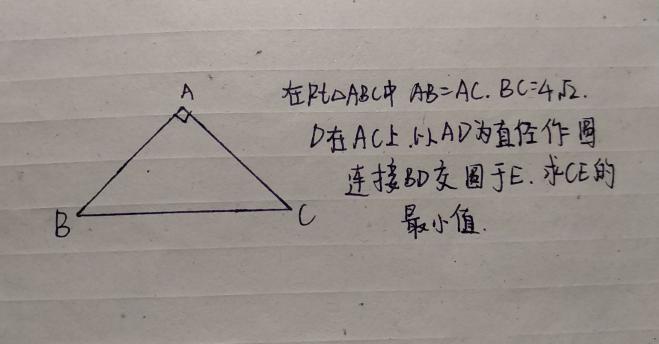 A
B
C
在Rt△ABC中 AB=AC. BC=4√2.
D在AC上,以AD为直径作圆
连接BD交圆于E.求CE的
最小值.